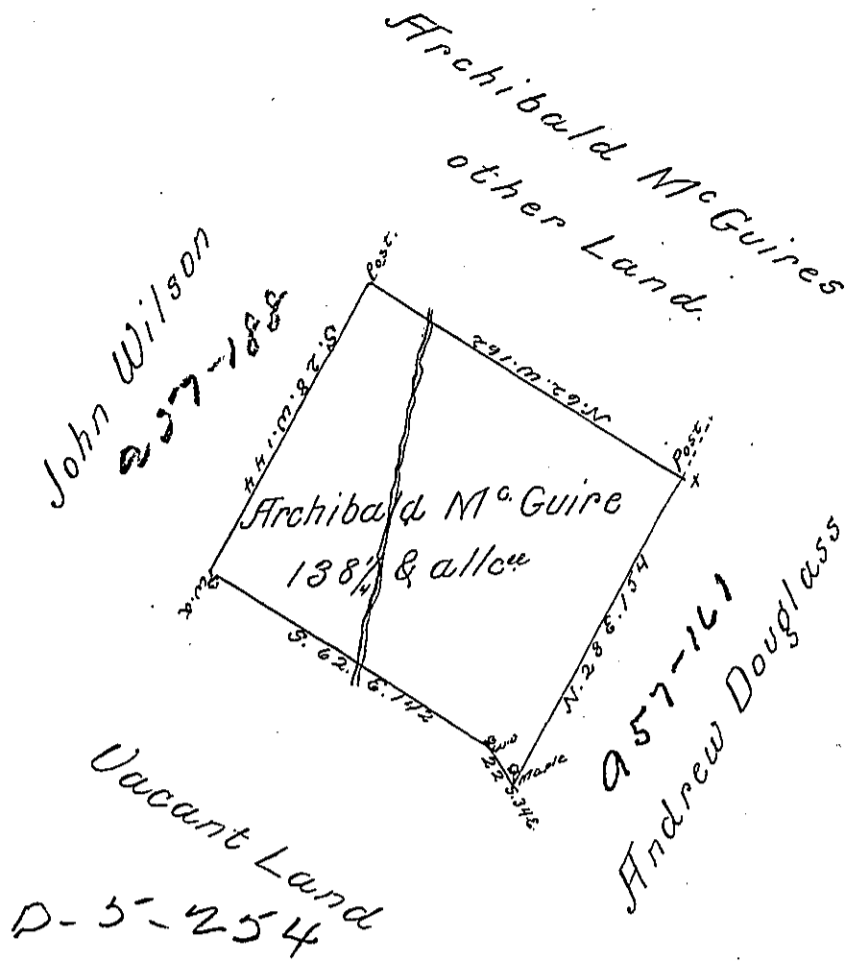 Archibald McGuires
other Land.
John Wilson
a57-188
Post.
S.28.W.144
N.62.W.162
Post.
x
Archibald Mc. Guire
138 1/4 & allce
N.28 E.154
a57-161
Andrew Douglass
w.o
S.62. E.142
w.o
Maple
22 S.34E.
Vacant Land
D-5-254